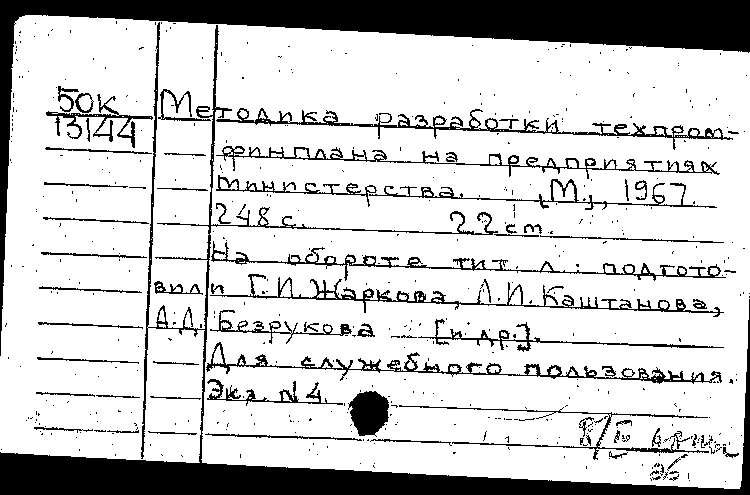 50К Методика разработки техпром-
13144
финплана на предприятиях
министерства. [М.], 1967.
248 с. 22 cm.
На обороте тит. л.: подгото-
вили Г.И. Жаркова, Л.И. Каштанова,
А.Д. Безрукова [и др.].
Для служебного пользования.
Экз. №4.